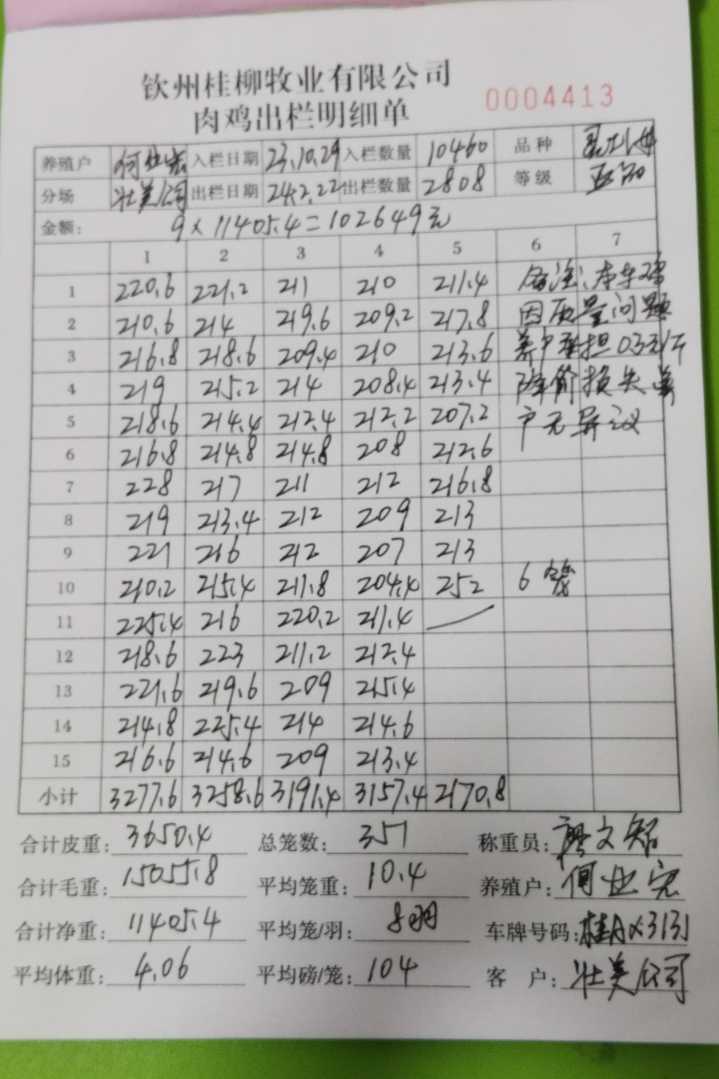 钦州桂柳牧业有限公司
肉鸡出栏明细单 0004413
养殖户 何业宏 入栏日期 23.10.29 入栏数量 10460 品种
分场 壮美公司 出栏日期 24.2.22 出栏数量 2808 等级
金额: 9×11405.4=102649元
1 2 3 4 5 6 7
1 220.6 221.2 211 210 211.4 备注:本车鸡
2 210.6 214 219.6 209.2 217.8 因质量问题
3 216.8 218.6 209.4 210 213.6 养户承担0.3元/斤
4 219 215.2 214 208.4 213.4 降价损失养
5 218.6 214.4 212.4 212.2 207.2 户无异议
6 216.8 214.8 214.8 208 212.6
7 228 217 211 212 216.8
8 219 213.4 212 209 213
9 221 216 212 207 213
10 210.2 215.4 211.8 204.4 252 6笼
11 225.4 216 220.2 211.4
12 218.6 223 211.2 212.4
13 221.6 219.6 209 215.4
14 214.8 225.4 214 214.6
15 216.6 214.6 209 213.4
小计 3277.6 3258.6 3191.4 3157.4 2170.8
合计皮重: 3650.4 总笼数: 357 称重员: 廖文韬
合计毛重: 15055.8 平均笼重: 10.4 养殖户: 何业宏
合计净重: 11405.4 平均笼/羽: 8羽 车牌号码: 桂AX3131
平均体重: 4.06 平均磅/笼: 104 客 户: 壮美公司